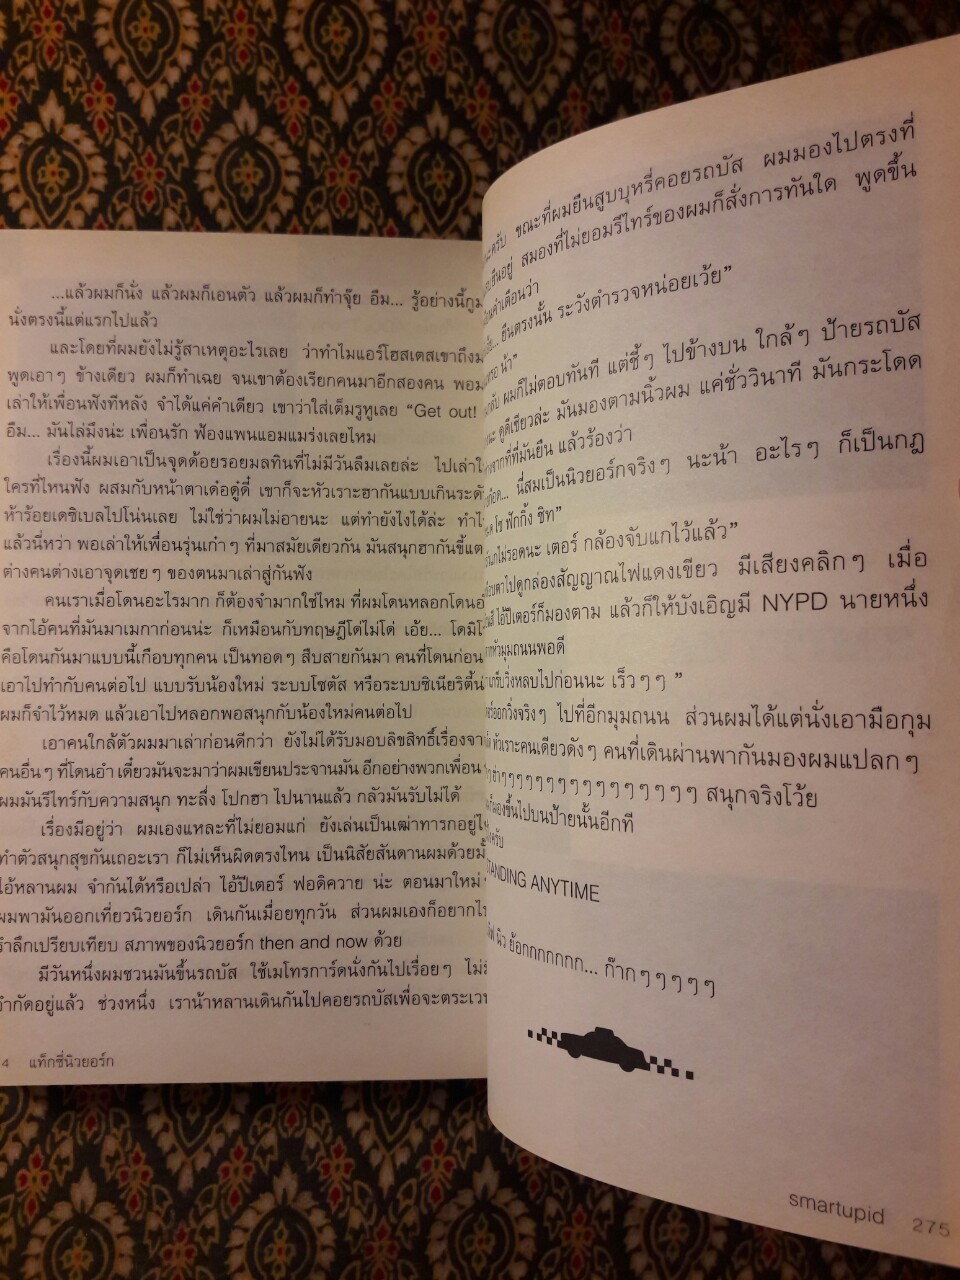 ...แล้วผมก็นั่ง แล้วผมก็เอนตัว แล้วผมก็ทำจุ๊ย อืม... รู้อย่างนี้กูม
นั่งตรงนี้แต่แรกไปแล้ว
และโดยที่ผมยังไม่รู้สาเหตุอะไรเลย ว่าทำไมแอร์โฮสเตสเขาถึงม
พูดเอาๆ ข้างเดียว ผมก็ทำเฉย จนเขาต้องเรียกคนมาอีกสองคน พอม
เล่าให้เพื่อนฟังทีหลัง จำได้แค่คำเดียว เขาว่าใส่เต็มรูหูเลย “Get out!
อืม... มันไล่มึงน่ะ เพื่อนรัก ฟ้องแพนแอมแมร่งเลยไหม
เรื่องนี้ผมเอาเป็นจุดด้อยรอยมลทินที่ไม่มีวันลืมเลยล่ะ ไปเล่าใ
ใครที่ไหนฟัง ผสมกับหน้าตาเด๋อดู๋ดี๋ เขาก็จะหัวเราะฮากันแบบเกินระดั
ห้าร้อยเดซิเบลไปโน่นเลย ไม่ใช่ว่าผมไม่อายนะ แต่ทำยังไงได้ล่ะ ทำไ
แล้วนี่หว่า พอเล่าให้เพื่อนรุ่นเก๋าๆ ที่มาสมัยเดียวกัน มันสนุกฮากันขี้แต
ต่างคนต่างเอาจุดเชยๆ ของตนมาเล่าสู่กันฟัง
คนเราเมื่อโดนอะไรมาก ก็ต้องจำมากใช่ไหม ที่ผมโดนหลอกโดนอํ
จากไอ้คนที่มันมาเมกาก่อนน่ะ ก็เหมือนกับทฤษฎีโด่ไม่โด่ เอ้ย... โดมิโ
คือโดนกันมาแบบนี้เกือบทุกคน เป็นทอดๆ สืบสายกันมา คนที่โดนก่อน
เอาไปทำกับคนต่อไป แบบรับน้องใหม่ ระบบโซตัส หรือระบบซิเนียริตี้น่
ผมก็จำไว้หมด แล้วเอาไปหลอกพอสนุกกับน้องใหม่คนต่อไป
เอาคนใกล้ตัวผมมาเล่าก่อนดีกว่า ยังไม่ได้รับมอบลิขสิทธิ์เรื่องจา
คนอื่นๆ ที่โดนอำ เดี๋ยวมันจะมาว่าผมเขียนประจานมัน อีกอย่างพวกเพื่อน
ผมมันรีไทร์กับความสนุก ทะลึ่ง โปกฮา ไปนานแล้ว กลัวมันรับไม่ได้
เรื่องมีอยู่ว่า ผมเองแหละที่ไม่ยอมแก่ ยังเล่นเป็นเฒ่าทารกอยู่ไ
ทำตัวสนุกสุขกันเถอะเรา ก็ไม่เห็นผิดตรงไหน เป็นนิสัยสันดานผมด้วยมั้
ไอ้หลานผม จำกันได้หรือเปล่า ไอ้ปีเตอร์ ฟอดิควาย น่ะ ตอนมาใหม่ๆ
ผมพามันออกเที่ยวนิวยอร์ก เดินกันเมื่อยทุกวัน ส่วนผมเองก็อยากไป
รำลึกเปรียบเทียบ สภาพของนิวยอร์ก then and now ด้วย
มีวันหนึ่งผมชวนมันขึ้นรถบัส ใช้เมโทรการ์ดนั่งกันไปเรื่อยๆ ไม่มี
จำกัดอยู่แล้ว ช่วงหนึ่ง เราน้าหลานเดินกันไปคอยรถบัสเพื่อจะตระเวน
4 แท็กซี่นิวยอร์ก
นะครับ ขณะที่ผมยืนสูบบุหรี่คอยรถบัส ผมมองไปตรงที่
ยืนอยู่ สมองที่ไม่ยอมรีไทร์ของผมก็สั่งการทันใด พูดขึ้น
คำเตือนว่า
ยืนตรงนั้น ระวังตำรวจหน่อยเว้ย”
หรอ น้า”
ผมก็ไม่ตอบทันที แต่ชี้ๆ ไปข้างบน ใกล้ๆ ป้ายรถบัส
ดูดีเชียวล่ะ มันมองตามนิ้วผม แค่ชั่ววินาที มันกระโดด
จากที่ที่มันยืน แล้วร้องว่า
นี่สมเป็นนิวยอร์กจริงๆ นะน้า อะไรๆ ก็เป็นกฎ
โซ ฟักกิ้ง ชิท”
ไม่รอดนะ เตอร์ กล้องจับแกไว้แล้ว”
ตาไปดูกล่องสัญญาณไฟแดงเขียว มีเสียงคลิกๆ เมื่อ
ไอ้ปีเตอร์ก็มองตาม แล้วก็ให้บังเอิญมี NYPD นายหนึ่ง
หัวมุมถนนพอดี
รีบวิ่งหลบไปก่อนนะ เร็วๆๆ ”
ออกวิ่งจริงๆ ไปที่อีกมุมถนน ส่วนผมได้แต่นั่งเอามือกุม
หัวเราะคนเดียวดังๆ คนที่เดินผ่านพากันมองผมแปลกๆ
ฮ่าๆๆๆๆๆๆๆๆๆๆๆๆๆๆๆ สนุกจริงโว้ย
มองขึ้นไปบนป้ายนั้นอีกที
ครับ
STANDING ANYTIME
นิว ย้อกกกกกกก... ก๊ากๆๆๆๆๆ
smartupid 275